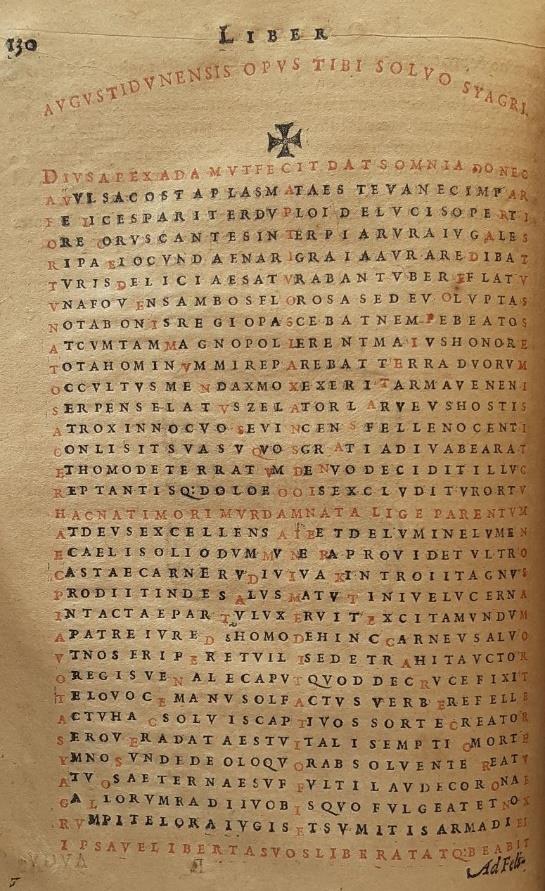 130 LIBER
AVGVSTIDVNENSIS OPVS TIBI SOLVO SYAGRI,
DIVSAPEXADAMVTFECITDATSOMNIADONEC
AVVLSACOSTAPLASMATAESTEVANECIMPAR
FELICESPARITERDVPLOIDELVCISOPERTI
ORECORVSCANTESINTERPIARVRAIVGALES
RIPAEIOCVNDAENARIGRAIAAVRAREDIBAT
TVRISDELICIAESATVRABANTVBEREFLATV
VNAFOVENSAMBOSFLOROSASEDEVOLVPTAS
NOTABONISREGIOPASCEBATNEMPEBEATOS
ATCVMTAMMAGNOPOLLERENTMAIVSHONORE
TOTAHOMINVMMIREPAREBATTERRADVORVM
OCCVLTVSMENDAXMOXEXERITARMAVENENI
SERPENSELATVSZELATORLARVEVSHOSTIS
ATROXINNOCVOSEVINCENSFELLENOCENTI
CONLISITSVASVQVOSGRATIADIVABEARAT
ETHOMODETERRATVMDENVODECIDITILLVC
REPTANTISQ:DOLOEOOISEXCLVDITVRORTV
HACNATIMORIMVRDAMNATALIGEPARENTVM
ATDEVSEXCELLENSAIEETDELVMINELVMEN
ECAELISOLIODVMMVNERAPROVIDETVLTRO
CASTAECARNERVDIVIVAXINTROIITAGNVS
PRODIITINDESALVSMATVTINIVELVCERNA
INTACTAEPARTVLVXERVITEXCITAMVNDVM
APATREIVREDSHOMODEHINCCARNEVSALVO
VTNOSFRIPERETVILISEDETRAHITAVCTOR
OREGISVENALECAPVTQVODDECRVCEFIXIT
TELOVOCEMANVSOLFACTVSVERBEREFELLE
ACTVHACSOLVISCAPTIVOSSORTECREATOR
SEROVERADATAESTVITALISEMPTIOMORTE
YMNOSVNDEDEOLOQVORABSOLVENTEREATV
ATVOSAETERNAESVFFVLTILAVDECORONAE
GALLORVMRADIIVOBISQVOFVLGEATETNOX
RVMPITELORAIVGISETSVMITISARMADIEI
IPSAVELIBERTASVOSLIBERATATQ:BEABIT
Ad Feli-